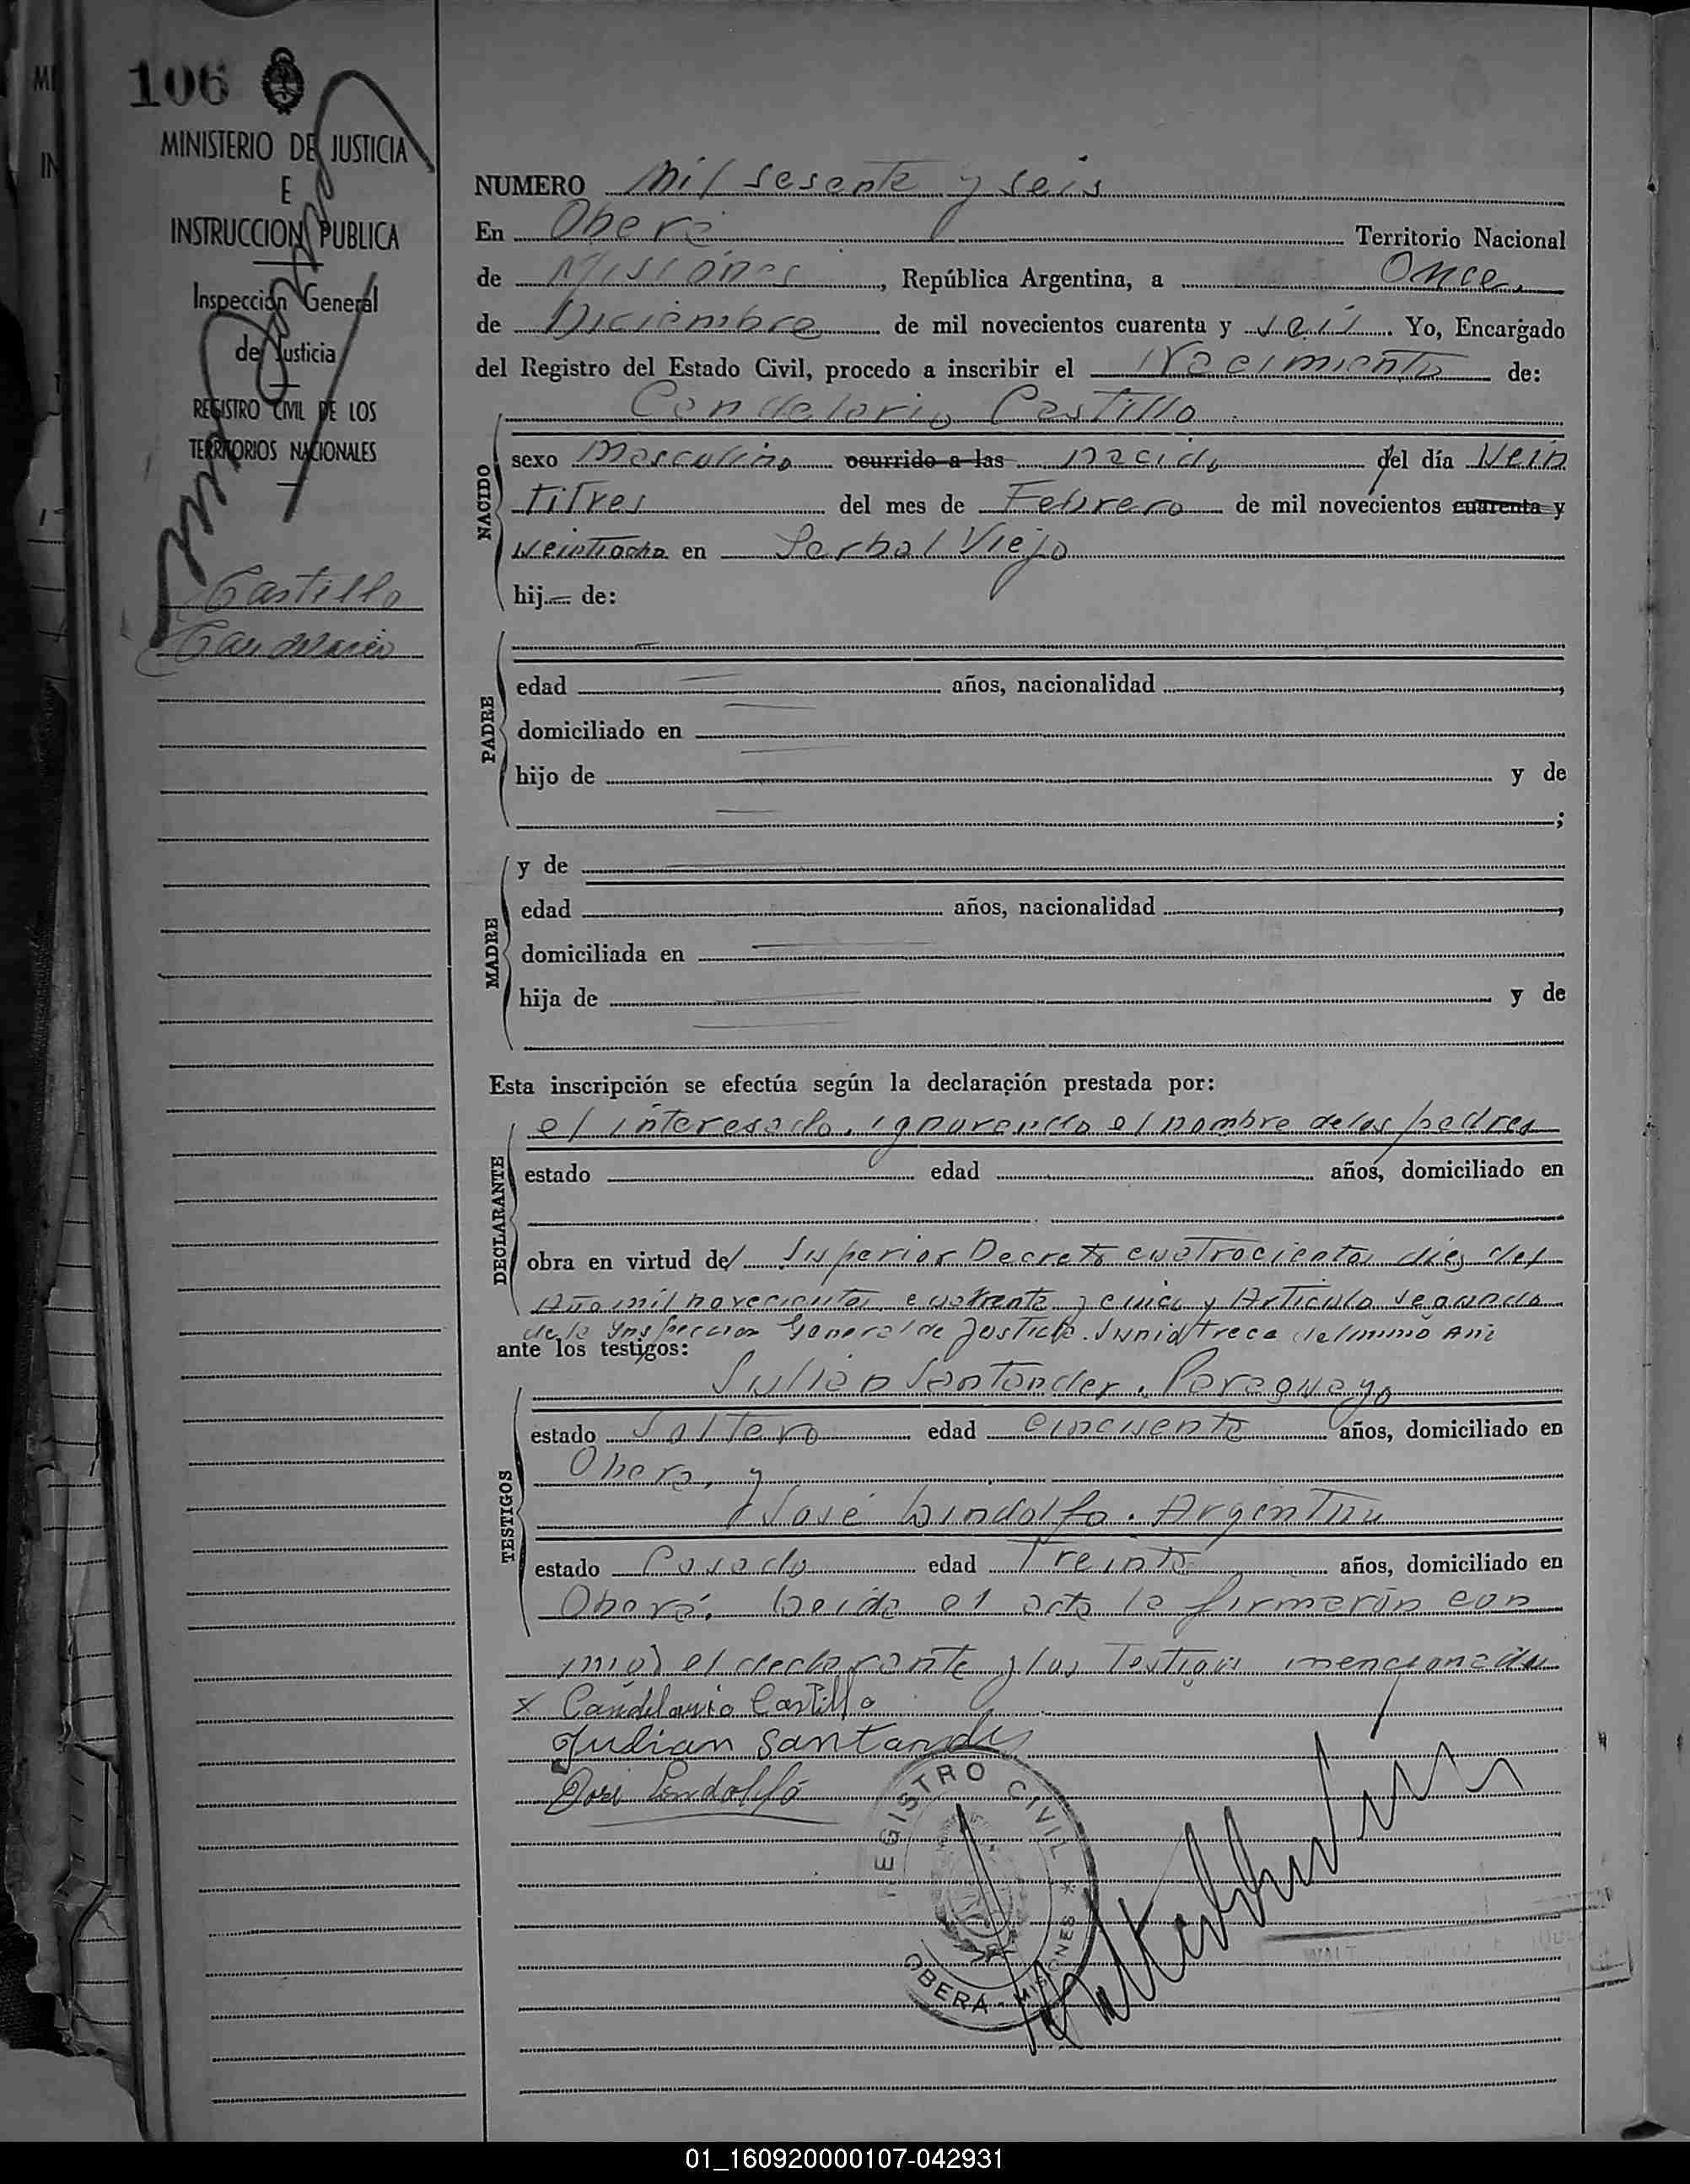 106
MINISTERIO DE JUSTICIA
E
INSTRUCCION PUBLICA
Inspección General
de Justicia
REGISTRO CIVIL DE LOS
TERRITORIOS NACIONALES
Castillo
Candelario
NUMERO Mil sesenta y seis
En Oberá Territorio Nacional
de Misiones, República Argentina, a Once
de Diciembre de mil novecientos cuarenta y seis. Yo, Encargado
del Registro del Estado Civil, procedo a inscribir el Nacimiento de:
Candelario Castillo
NACIDO
sexo Masculino ocurrido a las nacido del día Vein
titres del mes de Febrero de mil novecientos cuarenta y
veintiocho en Serbal Viejo
hij de:
PADRE
edad años, nacionalidad ,
domiciliado en
hijo de y de
;
MADRE
y de
edad años, nacionalidad ,
domiciliada en
hija de y de
Esta inscripción se efectúa según la declaración prestada por:
DECLARANTE
el interesado, ignorando el nombre de los padres
estado edad años, domiciliado en
obra en virtud del Superior Decreto cuatrocientos diez del
Año mil novecientos cuarenta y cinco y Articulo segundo
de la Inspeccion General de Justicia. Junio trece del mismo Año
ante los testigos:
TESTIGOS
Julián Santander, Paraguayo
estado Soltero edad cincuenta años, domiciliado en
Oberá, y
José Lindolfo. Argentino
estado Casado edad Treinta años, domiciliado en
Oberá. Leida el acta la firmarón con
migo el declarante y los Testigos mencionados
x Candelario Castillo
Julian Santander
José Lindolfo
REGISTRO CIVIL
OBERA - MISIONES
01_160920000107-042931